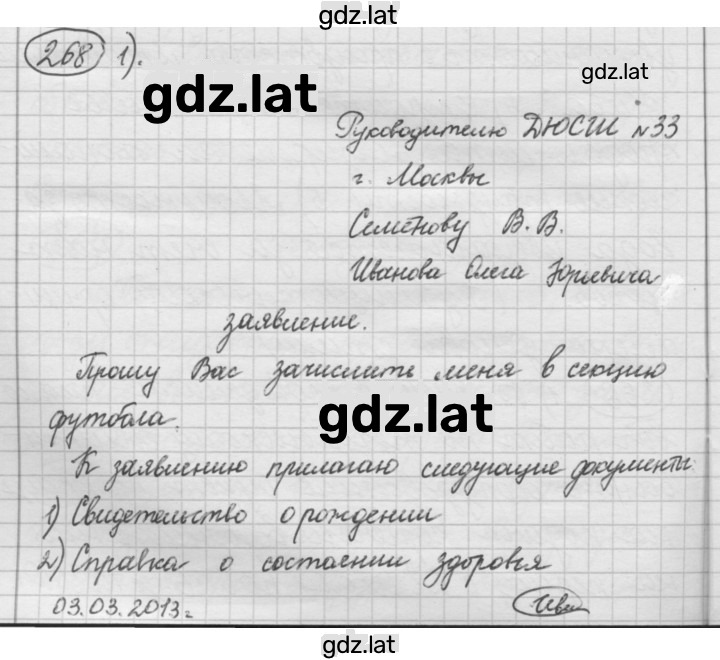 gdz.lat
268 1).
gdz.lat
gdz.lat
Руководителю ДЮСШ №33
г. Москвы
Семёнову В.В.
Иванова Олега Юрьевича
заявление.
Прошу Вас зачислить меня в секцию
футбола.
gdz.lat
К заявлению прилагаю следующие документы:
1) Свидетельство о рождении
2) Справка о состоянии здоровья
03.03.2013г.
gdz.lat